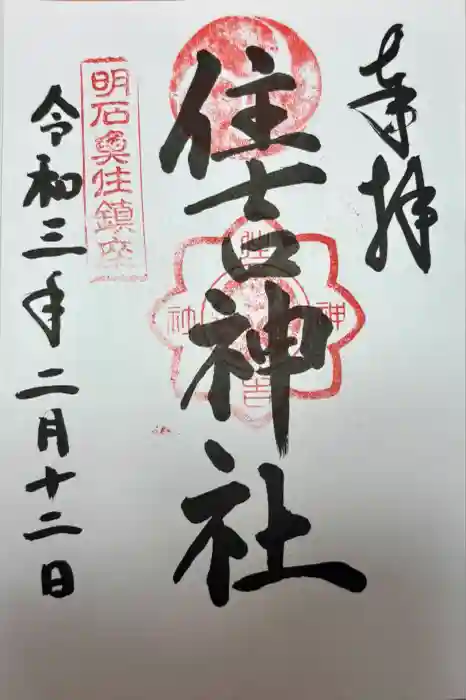 奉拝
住吉神社
明石魚住鎮座
住吉神社
令和三年二月十二日